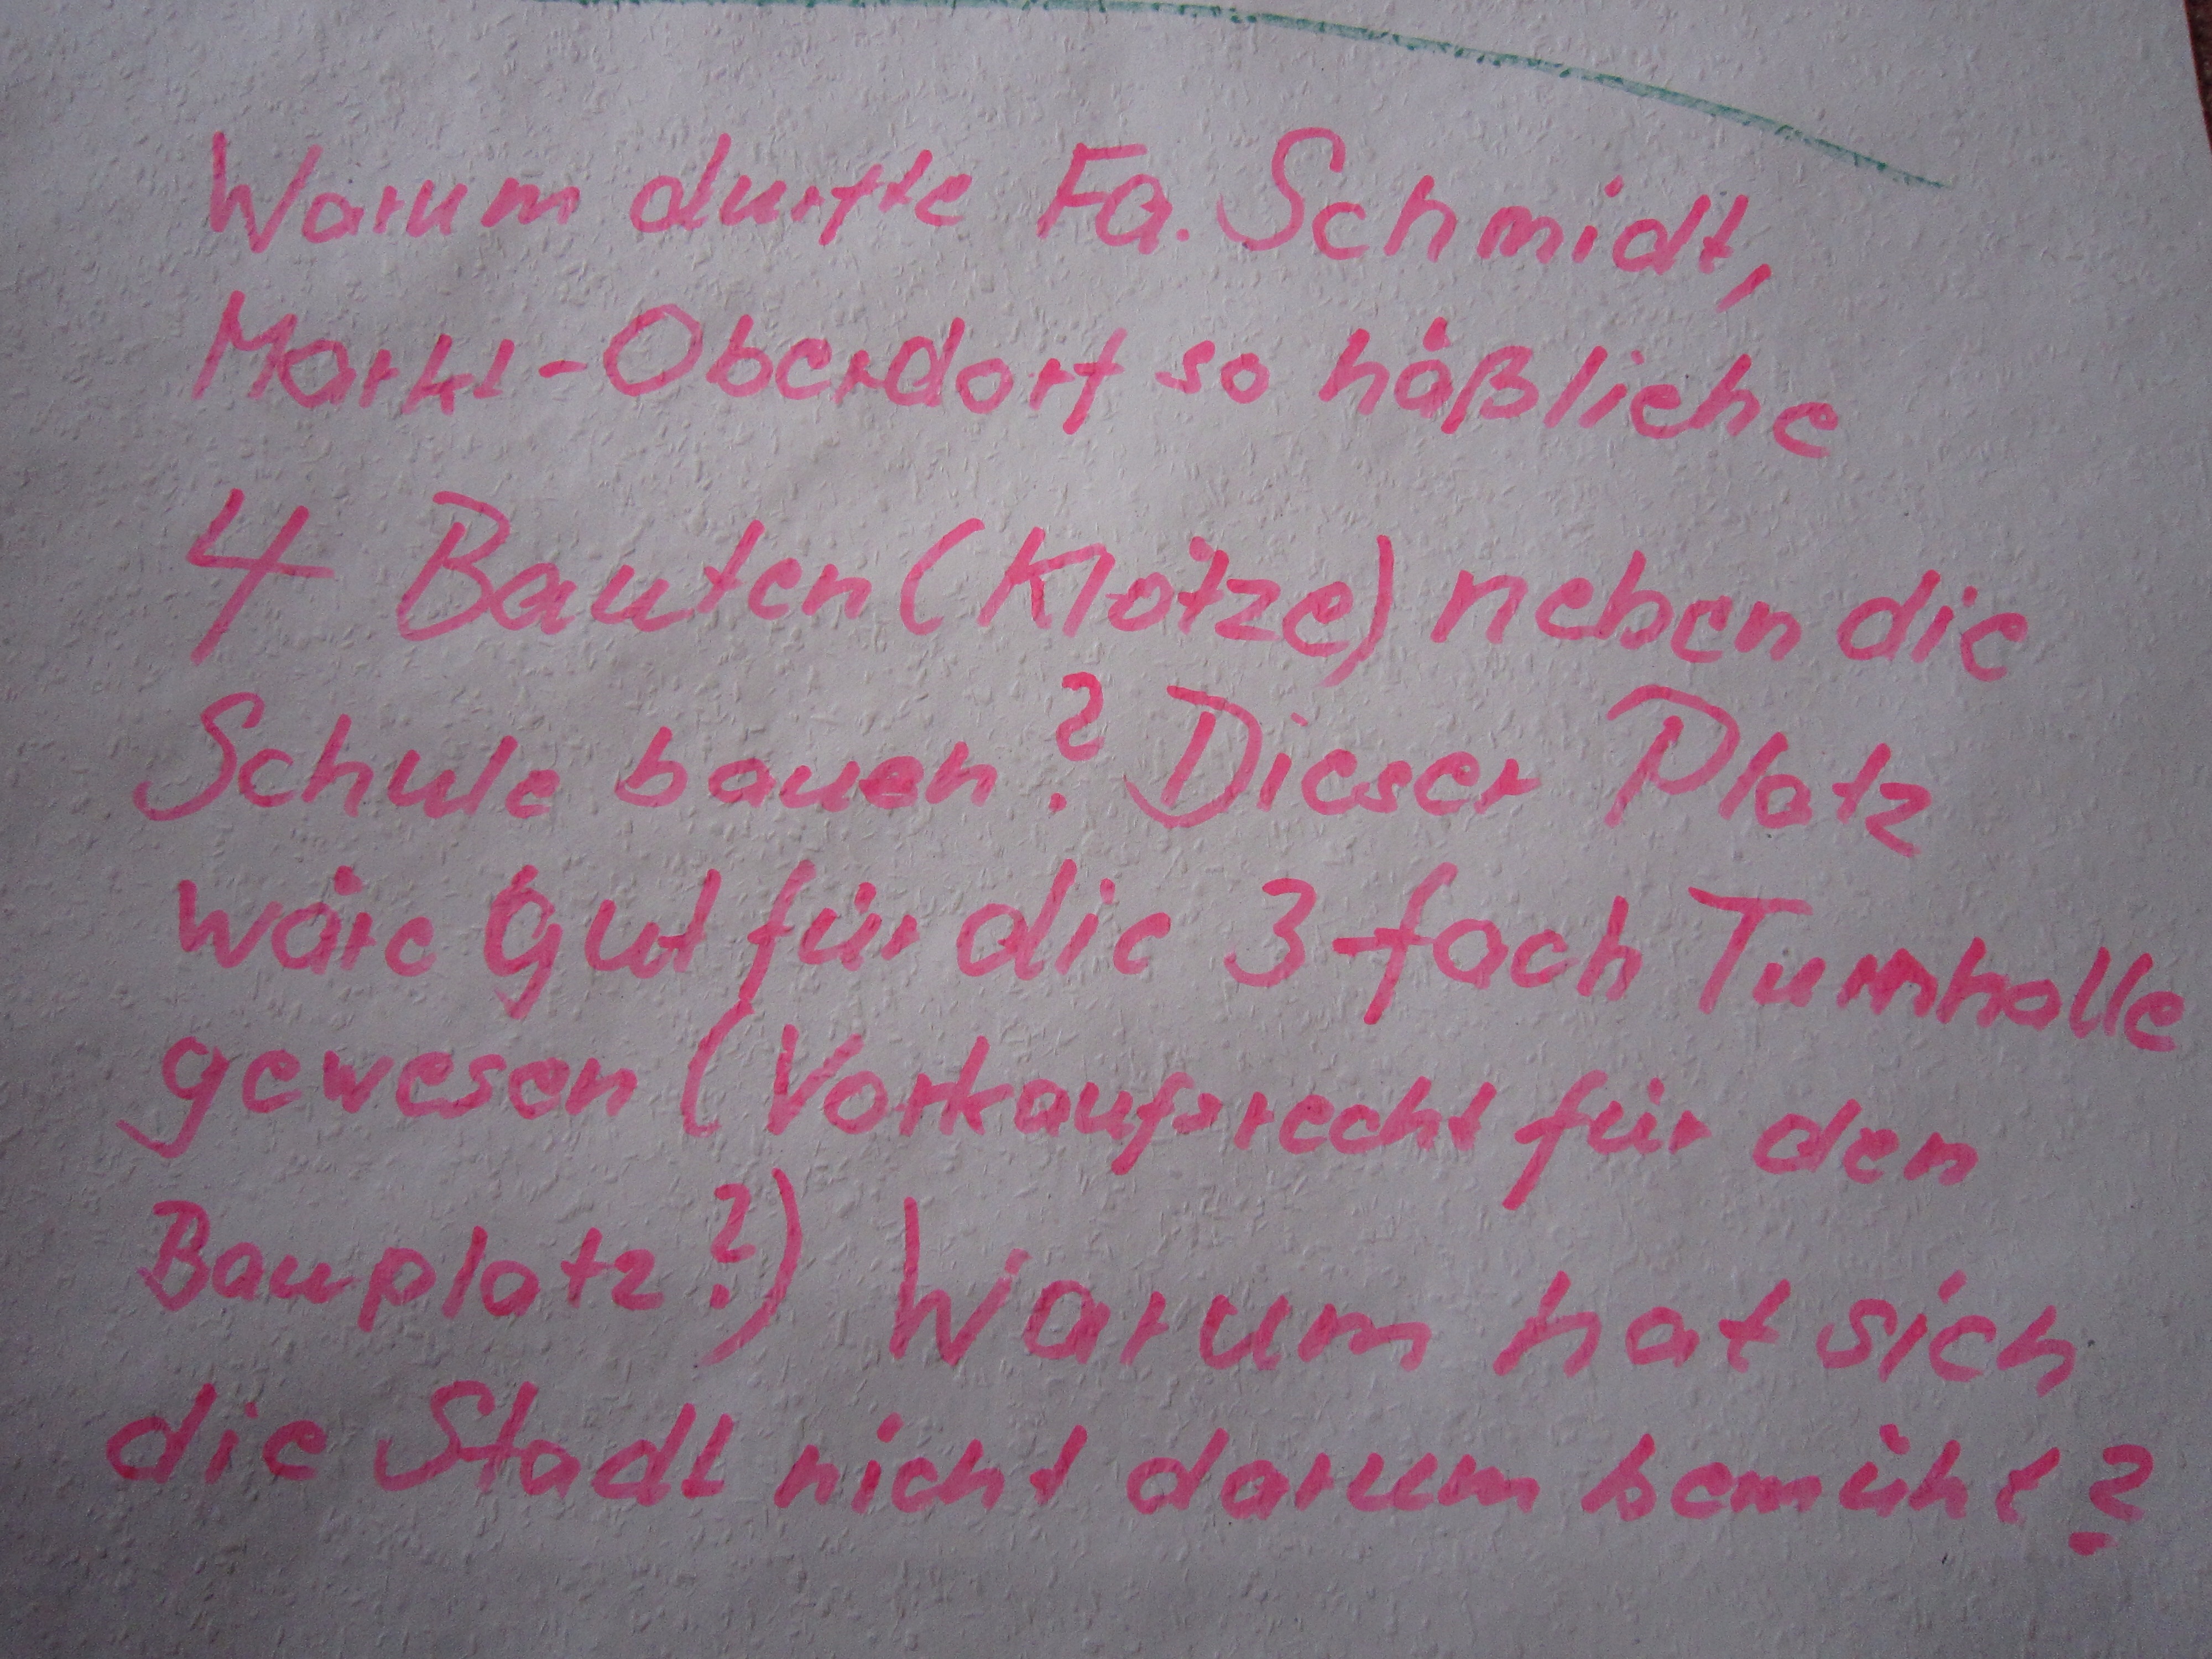 Warum durfte Fa. Schmidt,
Markt-Oberdorf so häßliche
4 Bauten (Klötze) neben die
Schule bauen? Dieser Platz
wäre Gut für die 3-fach Turnhalle
gewesen (Vorkaufsrecht für den
Bauplatz?) Warum hat sich
die Stadt nicht darum bemüht?